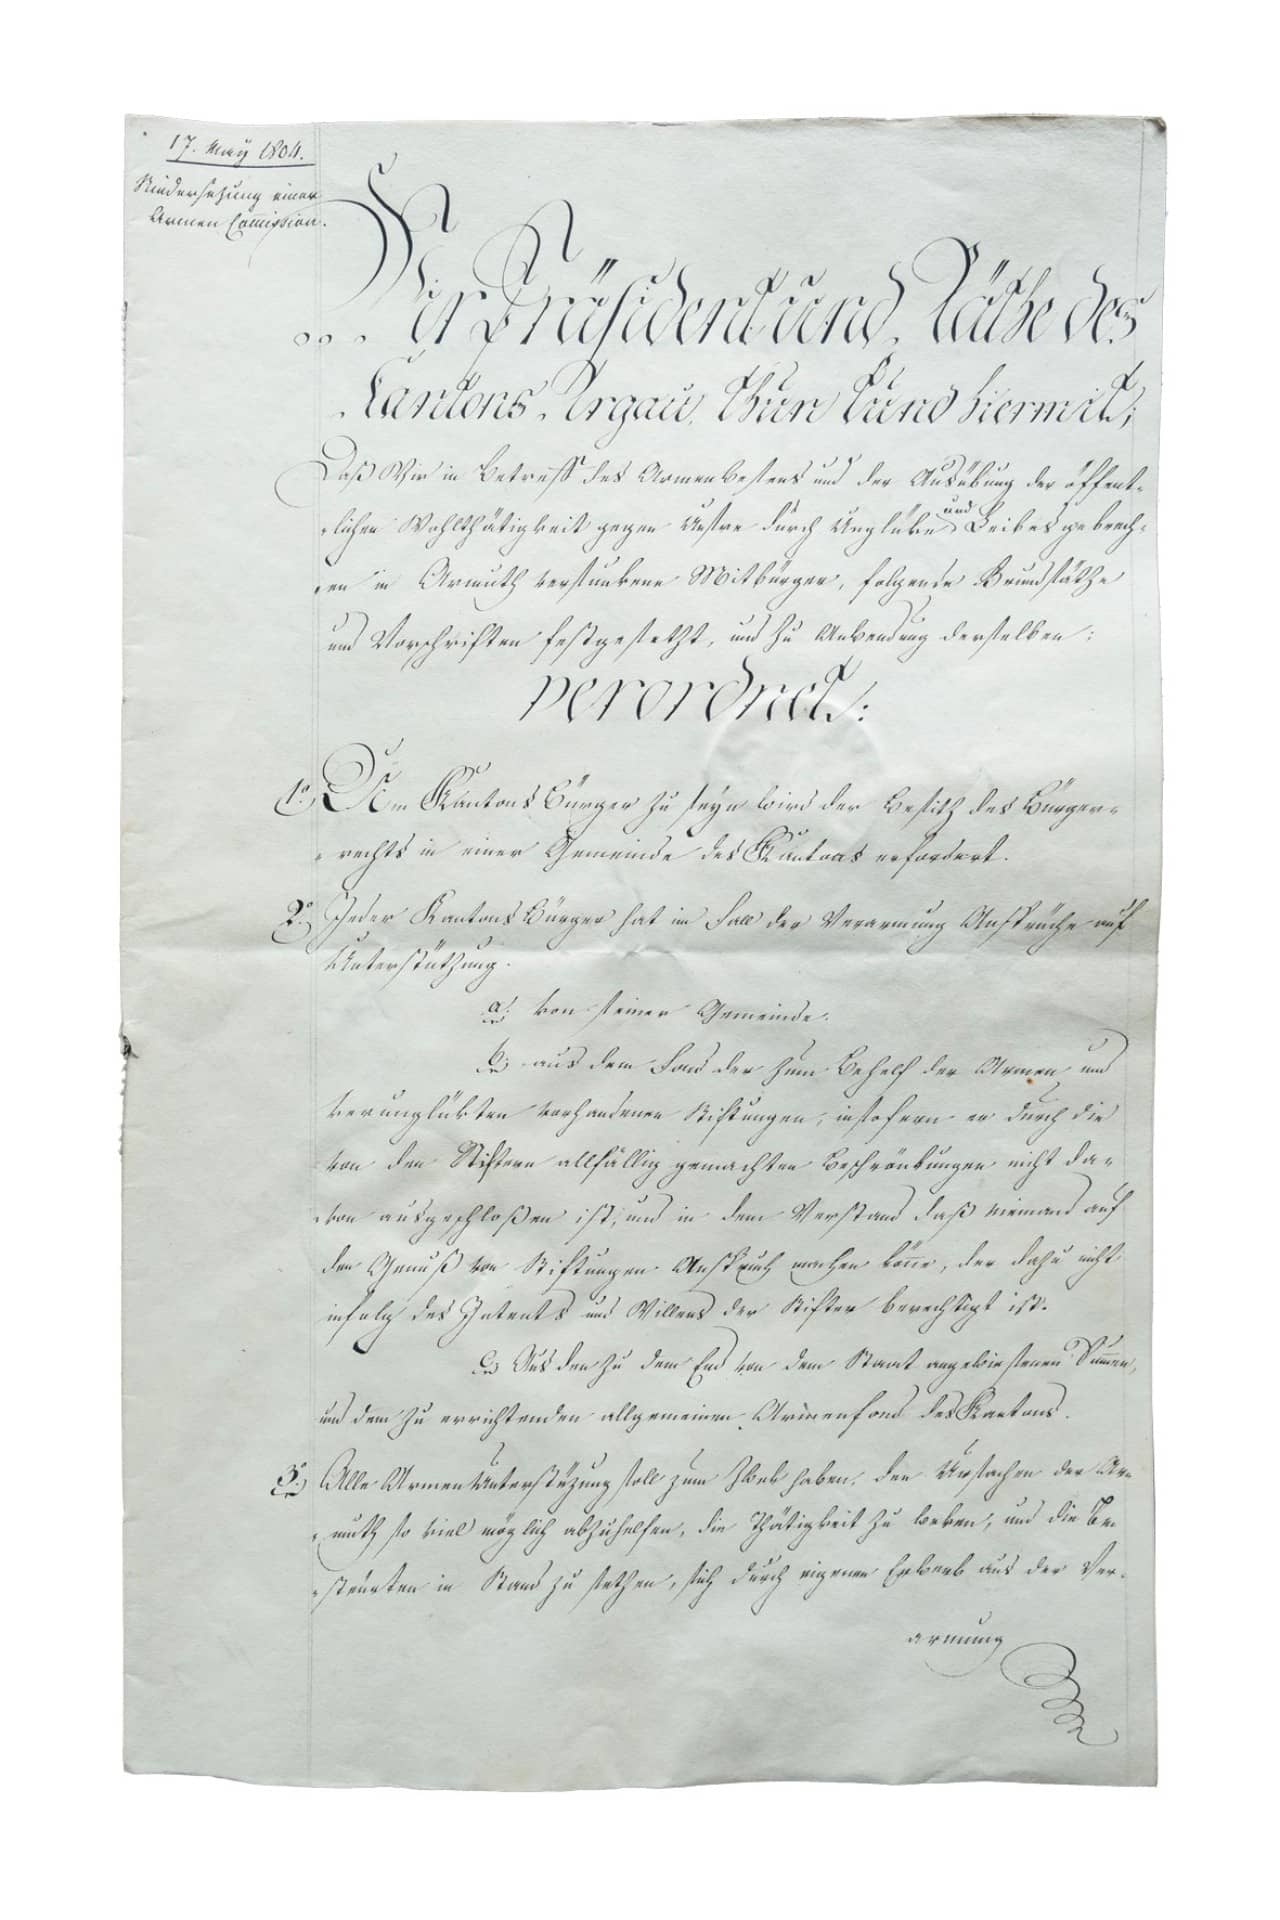 17. May 1804.
Niedersetzung einer
Armen Commission.
Wir Präsident und Räthe des
Cantons Argau, thun kund hiermit;
Daß Wir in Betreff des Armenwesens und der Ausübung der öffent-
lichen Wohlthätigkeit gegen Unsre durch Unglüke und Leibesgebrech-
en in Armuth versunkene Mitbürger, folgende Grundsäthe
und Vorschriften festgesetzt, und zu Anwendung derselben:
verordnet:
1.o Um Kantons Bürger zu seyn wird der Besitz des Bürger-
rechts in einer Gemeinde des Kantons erfordert.
2.o Jeder Kantons Bürger hat im Fall der Verarmung Ansprüche auf
Unterstüthung.
a. von seiner Gemeinde.
b. aus dem Fond der zum Behelf der Armen und
verunglükten vorhandenen Stiftungen, insofern er durch die
von den Stiftern allfällig gemachten Beschränkungen nicht da-
von ausgeschloßen ist, und in dem Verstand daß niemand auf
den Genuß von Stiftungen Anspruch machen könne, der dazu nicht
infolg des Intents und Willens der Stifter berechtigt ist.
c. Aus den zu dem End von dem Staat angewiesenen Summen,
und dem zu errichtenden allgemeinen Armenfond des Kantons.
3.o Alle Armen Unterstüzung soll zum Zwek haben, den Ursachen der Ar-
muth so viel möglich abzuhelfen, die Thätigkeit zu weken, und die Be-
steurten in Stand zu setzen, sich durch eigenen Erwerb aus der Ver-
armung